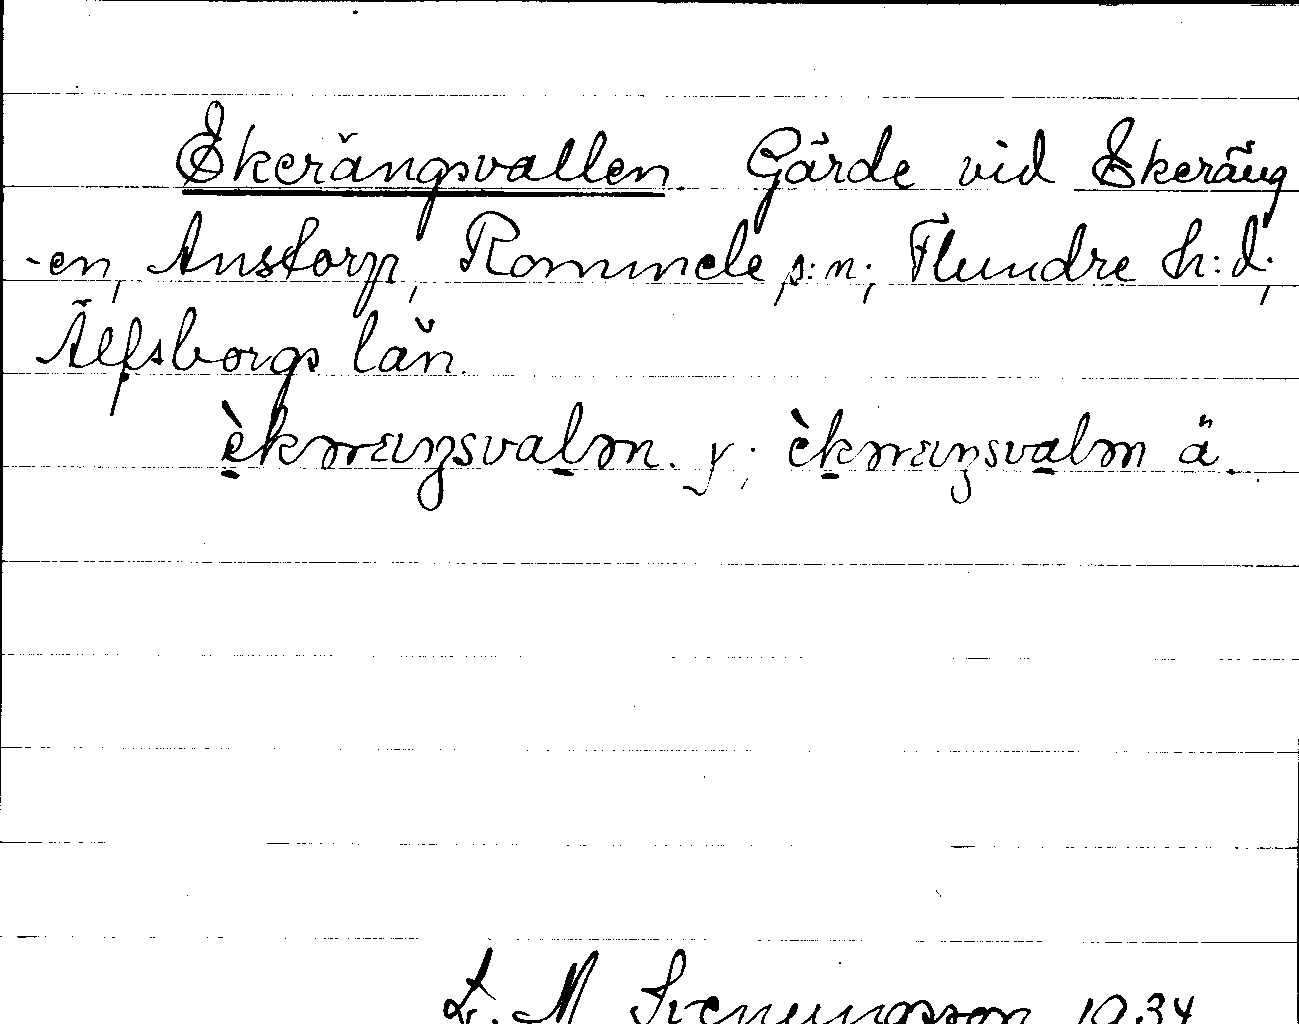 Ekerängsvallen. Gärde vid Ekeräng
-en, Anstorp, Rommele s:n; Flundre h:d;
Älfsborgs län.
èkəræŋsvalən. y; èkəræŋsvalən ä.
M Svenungsson 1934